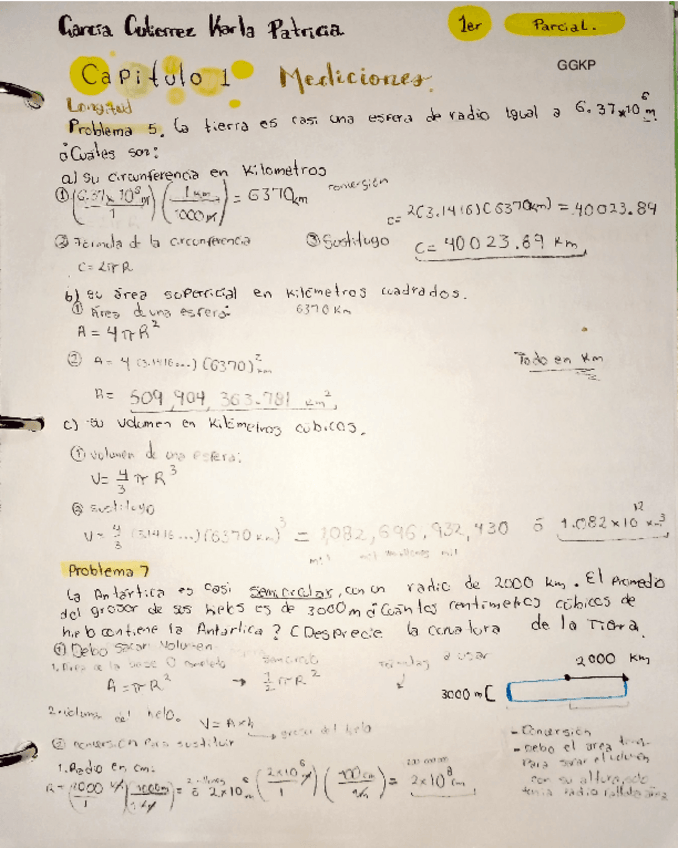 García Gutierrez Karla Patricia
1er Parcial.
GGKP
Capitulo 1 Mediciones.
Longitud
Problema 5. la tierra es casi una esfera de radio igual a 6.37x10⁶ m.
¿Cuáles son:
a) su circunferencia en Kilometros
① (6.37 x 10⁶ m / 1) (1 km / 1000 m) = 6370 km conversión
c= 2(3.1416)(6370km) = 40023.89
② Fórmula de la circonferencia
③ Sustituyo c= 40 023.89 km
C = 2πR
b) su área superficial en kilómetros cuadrados.
① Área de una esfera: 6370 Km
A = 4πR²
② A= 4 (3.1416...) (6370)² km
Todo en Km
A= 509,904,363.781 km²
c) su volumen en kilómetros cúbicos.
① volumen de una esfera:
V= 4/3 π R³
② sustituyo
V= 4/3 (3.1416...) (6370 km)³ = 1,082,696,932,430 ó 1.082x10¹² km³
mil mil millones mil
Problema 7
la Antártica es casi semicircular, con un radio de 2000 km. El promedio
del grosor de sus hielos es de 3000m ¿Cuántos centímetros cúbicos de
hielo contiene la Antartica? (Desprecie la curvatura de la Tierra.
① Debo sacar Volumen
1. Área de la base O completo semicirculo formulas a usar
2000 Km
A = πR² → 1/2 πR²
3000 m
2. volumen del hielo. V= Axh
grosor del hielo
② conversión para sustituir
- Conversión
- Debo el area
para sacar el volumen
con su altura, solo
tenia radio
1. Radio en cm:
R= (2000 km / 1) (1000m / 1 km) = 2 millones ó 2x10⁶ m (2x10⁶ m / 1) (100 cm / 1m) = 2x10⁸ cm